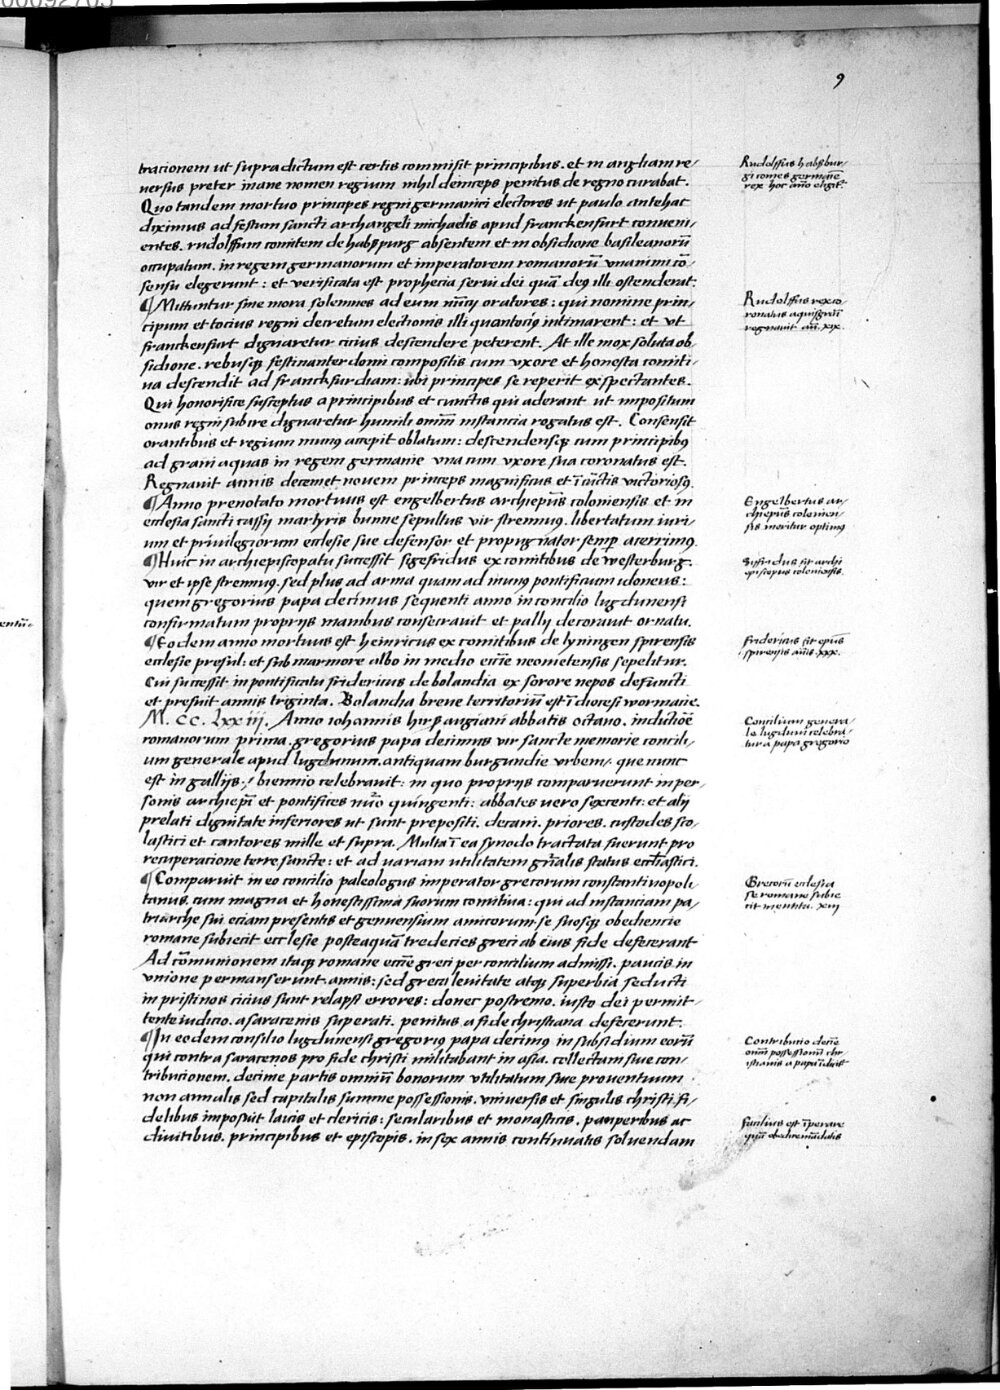 9
tracionem ut supradictum est certis commisit principibus. et in angliam re-
versus preter inane nomen regium nihil deinceps penitus de regno curabat.
Quo tandem mortuo principes regni germanici electores ut paulo antehac
diximus ad festum sancti archangeli michaelis apud franckenfurt conveni-
entes. rudolffum comitem de habspurg absentem et in obsidione basileanorū
occupatum. in regem germanorum et imperatorem romanorū unanimi cō-
sensu elegerunt: et verificata est prophecia servi dei quā deꝰ illi ostenderat.
¶ Mittuntur sine mora solemnes ad eum nūcij oratores: qui nomine prin-
cipum et tocius regni decretum electionis illi quantociꝰ intimarent: et ut
franckenfurt dignaretur cicius descendere peterent. At ille mox soluta ob-
sidione. rebusqꝫ festinanter domi compositis cum uxore et honesta comiti-
va descendit ad franckfurdiam: ubi principes se reperit exspectantes.
Qui honorifice susceptus a principibus et cunctis qui aderant ut impositum
onus regni subire dignaretur humili omīm instancia rogatus est. Consensit
orantibus et regium munꝰ accepit oblatum: descendensqꝫ cum principibꝰ
ad grani aquas in regem germanie una cum uxore sua coronatus est.
Regnavit annis decem et novem princeps magnificus et ī cūctis victoriosꝰ.
¶ Anno prenotato mortuus est engelbertus archiepūs coloniensis et in
ecclesia sancti cassij martyris bunne sepultus vir strennuꝰ. libertatum iuri-
um et privilegiorum ecclesie sue defensor et propugnator semp acerrimꝰ.
¶ Huic in archiepiscopatu successit sigefridus ex comitibus de westerburg.
vir et ipse strennuꝰ. sed plus ad arma quam ad munꝰ pontificum idoneus:
quem gregorius papa decimus sequenti anno in concilio lugdunensi
confirmatum proprijs manibus consecravit et pallij decoravit ornatu.
¶ Eodem anno mortuus est heinricus ex comitibus de lyningen spirensis
ecclesie presul: et sub marmore albo in medio eccīe neometensis sepelitur.
Cui successit in pontificatu fridericus de bolandia ex sorore nepos defuncti
et presuit annis triginta. Bolandia breve territoriū est ī diocesi wormacie.
M. CC. lxxiij. Anno iohannis hirsaugiani abbatis octavo. indictiōe
romanorum prima. gregorius papa decimus vir sancte memorie concili-
um generale apud lugdunum. antiquam burgundie urbem. que nunc
est in gallijs. biennio celebravit: in quo proprijs comparuerunt in per-
sonis archiepī et pontifices nūo quingenti: abbates vero sexcenti: et alij
prelati dignitate inferiores ut sunt prepositi. decani. priores. custodes sco-
lastici et cantores mille et supra. Multa ī ea synodo tractata fuerunt pro
recuperacione terre sancte: et ad variam utilitatem gn̄alis status ecc̄iastici.
¶ Comparuit in eo concilio paleologus imperator grecorum constantinopoli-
tanus. cum magna et honestissima suorum comitiva: qui ad instanciam pa-
triarche sui eciam presentis et genuensium amicorum. se suosqꝫ obediencie
romane subiecit ecclesie posteaquā tredecies greci ab eius fide defecerant
Ad cōmunionem itaqꝫ romane eccīe greci per concilium admissi. paucis in
unione permanserunt annis: sed greci levitate atqꝫ superbia seducti
in pristinos cicius sunt relapsi errores: donec postremo. iusto dei permit-
tente iudicio. a saracenis superati. penitus a fide christiana defecerunt.
¶ In eodem consilio lugdunensi gregoriꝰ papa decimꝰ in subsidium eorū
qui contra saracenos pro fide christi militabant in asia. collectam sive con-
tribucionem. decime partis omniū bonorum utilitatum sive proventuum
non annalis sed capitalis summe possessionis. universis et singulis christi fi-
delibus imposuit laicis et clericis: secularibus et monasticis. pauperibus ac
divitibus. principibus et episcopis. in sex annis continuatis solvendam
Rudolffus habsbur-
gi comes germanie
rex hoc āno eligit.
Rudolffus rex co
ronatus aquisgrani
regnavit an̄. xix.
Engelbertus ar-
chiepūs colonien-
sis moritur optimꝰ
Siffridus fit archi
episcopus coloniensis.
fridericus fit epūs
spirensis ānis. xxx.
Concilium genera-
le lugduni celebra-
tur a papa gregorio
Grecorū ecclesia
se romane subie
cit mentita. xiij
Contributio decīe
om̄m possessionū chr-
istianis a papa īdicit
facilius est īperare
quā obedire